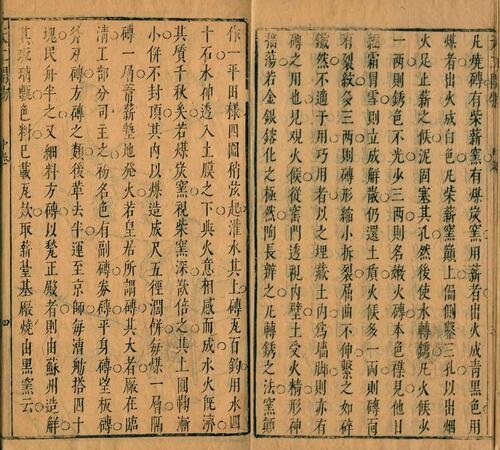 凡燒磚有柴薪窰有煤炭窰用薪者出火成青黑色用
煤者出火成白色凡柴薪窰巔上偏側鑿三孔以出烟
火足止薪之候泥固塞其孔然後使水轉銹凡火候少
一兩則銹色不光少三兩則名嫩火磚本色雜見他日
經霜冒雪則立成解散仍還土質火候多一兩則磚面
有裂紋多三兩則磚形縮小拆裂屈曲不伸擊之如碎
鐵然不適于用巧用者以之埋藏土内為墻脚則亦有
磚之用也凡觀火候從窰門透視内壁土受火精形神
搖蕩若金銀鎔化之極然陶長辨之凡轉銹之法窰巔
作一平田樣四圍稍弦起灌水其上磚瓦百鈞用水四
十石水神透入土膜之下與火意相感而成水火既濟
其質千秋矣若煤炭窰視柴窰深欲倍之其上圓鞠漸
小併不封頂其内以煤造成尺五徑濶餅每煤一層隔
磚一層葦薪墊地發火若皇居所謂磚其大者廠在臨
清工部分司主之初名色有副磚券磚平身磚望板磚
斧刃磚方磚之類後革去半運至京師每漕舫搭四十
塊民舟半之又細料方磚以甃正殿者則由蘇州造解
其琉璃磚色料已載瓦款取薪臺基廠燒由黑窰云
中卷
四